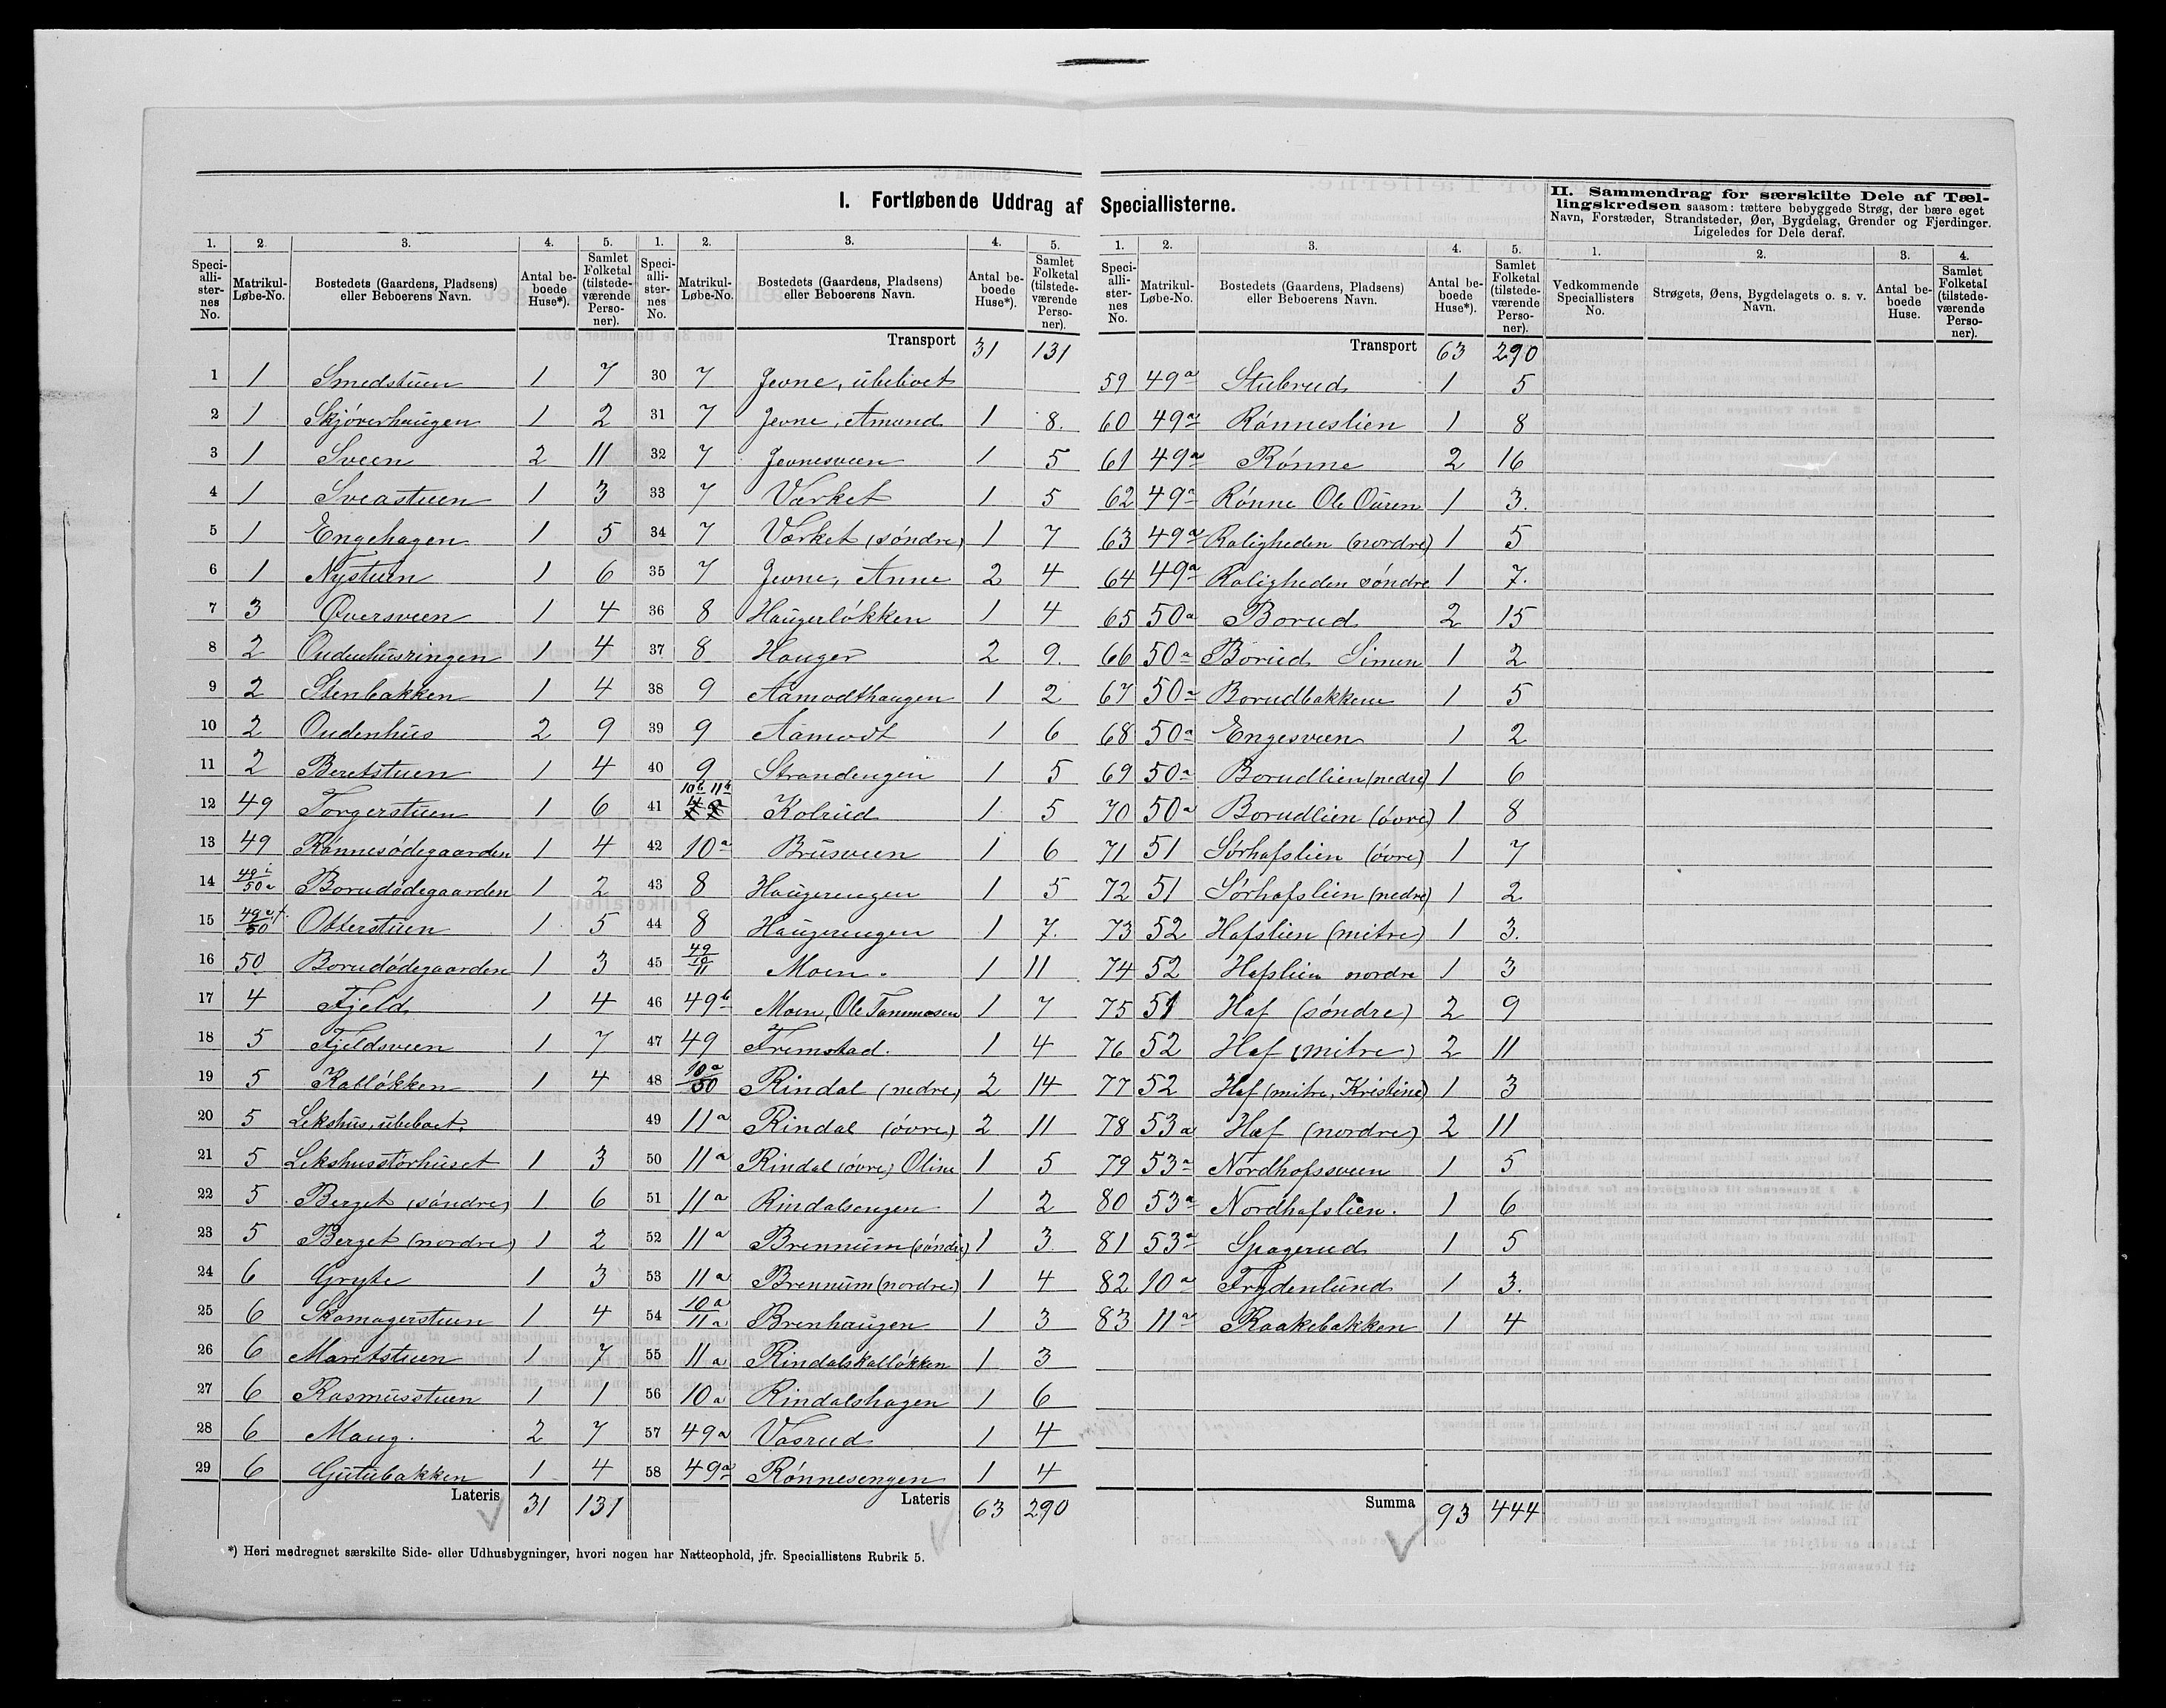 I. Fortløbende Uddrag af Speciallisterne.
II. Sammendrag for særskilte Dele af Tællingskredsen saasom: tættere bebyggede Strøg, der bære eget Navn, Forstæder, Strandsteder, Øer, Bygdelag, Grender og Fjerdinger. Ligeledes for Dele deraf.
1. 2. 3. 4. 5. 1. 2. 3. 4. 5. 1. 2. 3. 4. 5. 1. 2. 3. 4.
Speciallisternes No. Matrikul-Løbe-No. Bostedets (Gaardens, Pladsens) eller Beboerens Navn. Antal beboede Huse*). Samlet Folketal (tilstedeværende Personer).
Speciallisternes No. Matrikul-Løbe-No. Bostedets (Gaardens, Pladsens) eller Beboerens Navn. Antal beboede Huse*). Samlet Folketal (tilstedeværende Personer).
Speciallisternes No. Matrikul-Løbe-No. Bostedets (Gaardens, Pladsens) eller Beboerens Navn. Antal beboede Huse*). Samlet Folketal (tilstedeværende Personer).
Vedkommende Speciallisters No. Strøgets, Øens, Bygdelagets o. s. v. Navn. Antal beboede Huse. Samlet Folketal (tilstedeværende Personer).
1 1 Smedstuen 1 7
2 1 Skjöverhaugen 1 2
3 1 Sveen 2 11
4 1 Sveastuen 1 3
5 1 Engehagen 1 5
6 1 Nystuen 1 6
7 3 Oversveen 1 4
8 2 Oudenhusringen 1 4
9 2 Stenbakken 1 4
10 2 Oudenhus 2 9
11 2 Beretstuen 1 4
12 49 Torgerstuen 1 6
13 49 Rönnesödegaarden 1 4
14 50a Borudödegaarden 1 2
15 50 Otterstuen 1 5
16 50 Borudödegaarden 1 3
17 4 Fjeld 1 4
18 5 Fjeldsveen 1 7
19 5 Kallökken 1 4
20 5 Lekshus, ubeboet.
21 5 Lekshusstorhuset 1 3
22 5 Berget (söndre) 1 6
23 5 Berget (nordre) 1 2
24 6 Gryte 1 3
25 6 Skomagerstuen 1 4
26 6 Maritstuen 1 7
27 6 Rasmusstuen 1 1
28 6 Maug. 2 7
29 6 Gutubakken 1 4
Lateris 31 131
Transport 31 131
30 7 Jevne, ubeboet
31 7 Jevne, Amund 1 8.
32 7 Jevnesveen 1 5
33 7 Værket 1 5
34 7 Værket (söndre) 1 7
35 7 Jevne, Anne 2 4
36 8 Haugerlökken 1 4
37 8 Hauger 2 9.
38 9 Aamodthaugen 1 2
39 9 Aamodt 1 6
40 9 Strandengen 1 5
41 10b 11b Kolrud 1 5
42 10a Brusveen 1 6
43 8 Haugerengen 1 5
44 8 Haugerengen 1 7.
45 49 10 11 Moen. 1 11
46 49b Moen, Ole Tommesen 1 7
47 49 Fremstad. 1 4
48 10a 50 Rindal (nedre) 2 14
49 11a Rindal (övre) 2 11
50 11a Rindal (övre) Oline 1 5
51 11a Rindalsengen 1 2
52 11a Brennum (söndre) 1 3.
53 11a Brennum (nordre) 1 4
54 10a 11a Brenhaugen 1 3
55 11a Rindalskallökken 1 3
56 10a Rindalshagen 1 6
57 49a Vasrud 1 4
58 49a Rönnesengen 1 4
Lateris 63 290
Transport 63 290
59 49a Stubrud 1 5
60 49a Rönneslien 1 8
61 49a Rönne 2 16
62 49a Rönne Ole Ouren 1 3.
63 49a Roligheden (nordre) 1 5
64 49a Roligheden söndre 1 7.
65 50a Borud 2 15
66 50a Borud Simen 1 2
67 50a Borudbakken 1 5
68 50a Engesveen 1 2
69 50a Borudlien (nedre) 1 6
70 50a Borudlien (övre) 1 8
71 51 Sörhofslien (övre) 1 7
72 51 Sörhofslien (nedre) 1 2
73 52 Hofslien (mitre) 1 3.
74 52 Hofslien nordre 1 3
75 51 Hof (söndre) 2 9
76 52 Hof (mitre) 2 11
77 52 Hof (mitre, Kristine) 1 3
78 53a Hof (nordre) 2 11
79 53a Nordhofssveen 1 5
80 53a Nordhofslien. 1 6
81 53a Spagerud 1 5
82 10a Frydenlund 1 3.
83 11a Raakebakken 1 4
Summa 93 444
*) Heri medregnet særskilte Side- eller Udhusbygninger, hvori nogen har Natteophold, jfr. Speciallistens Rubrik 5.